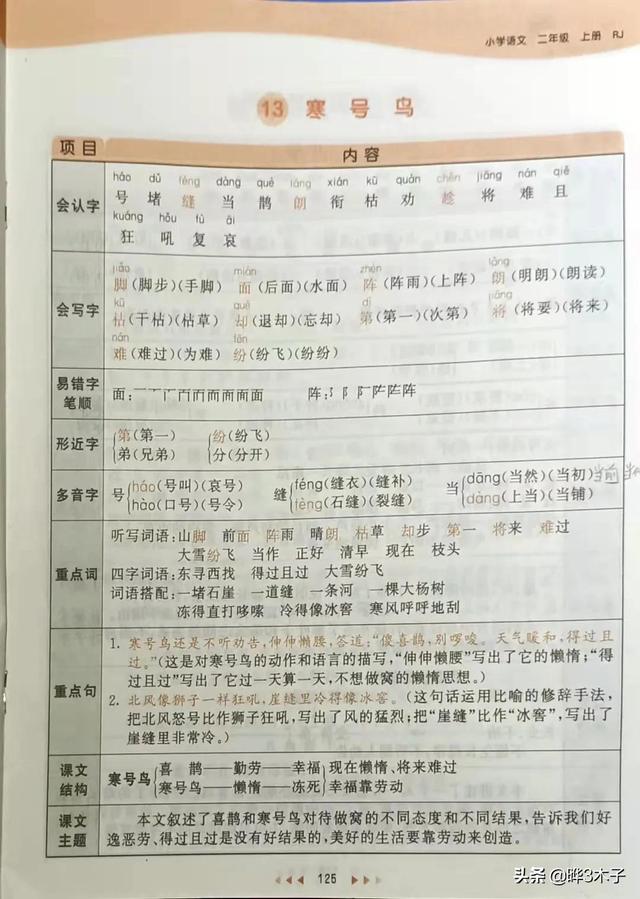 小学语文 二年级 上册 RJ
13 寒号鸟
项目 内容
háo dǔ fèng dàng què lǎng xián kū quàn chèn jiāng nán qiě
会认字 号 堵 缝 当 鹊 朗 衔 枯 劝 趁 将 难 且
kuáng hǒu fù āi
狂 吼 复 哀
jiǎo miàn zhèn lǎng
脚(脚步)(手脚) 面(后面)(水面) 阵(阵雨)(上阵) 朗(明朗)(朗读)
kū què dì jiāng
会写字 枯(干枯)(枯草) 却(退却)(忘却) 第(第一)(次第) 将(将要)(将来)
nán
难(难过)(为难) 纷(纷飞)(纷纷)
易错字笔顺 面: 阵:
形近字 第(第一) 纷(纷飞)
弟(兄弟) 分(分开)
多音字 号 háo(号叫)(哀号) 缝 féng(缝衣)(缝补) 当 dāng(当然)(当初)
hào(口号)(号令) fèng(石缝)(裂缝) dàng(上当)(当铺)
听写词语:山脚 前面 阵雨 晴朗 枯草 却步 第一 将来 难过
大雪纷飞 当作 正好 清早 现在 枝头
重点词 四字词语:东寻西找 得过且过 大雪纷飞
词语搭配:一堵石崖 一道缝 一条河 一棵大杨树
冻得直打哆嗦 冷得像冰窖 寒风呼呼地刮
1. 寒号鸟还是不听劝告,伸伸懒腰,答道:“傻喜鹊,别啰唆。天气暖和,得过且
过。”(这是对寒号鸟的动作和语言的描写,“伸伸懒腰”写出了它的懒惰;“得
重点句 过且过”写出了它过一天算一天,不想做窝的懒惰思想。)
2. 北风像狮子一样狂吼,崖缝里冷得像冰窖。(这句话运用比喻的修辞手法,
把北风怒号比作狮子狂吼,写出了风的猛烈;把“崖缝”比作“冰窖”,写出了
崖缝里非常冷。)
课文结构 寒号鸟 喜 鹊——勤劳——幸福 现在懒惰、将来难过
寒号鸟——懒惰——冻死 幸福靠劳动
课文主题 本文叙述了喜鹊和寒号鸟对待做窝的不同态度和不同结果,告诉我们好
逸恶劳、得过且过是没有好结果的,美好的生活要靠劳动来创造。
125
头条 @晔3木子